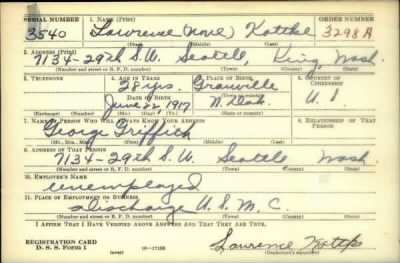 SERIAL NUMBER 1. NAME (Print) ORDER NUMBER
3540 Lawrence (None) 3298A
(First) (Middle) (Last)
2. ADDRESS (Print)
7134-29th S.W. Seattle, King, Wash.
(Number and street or R. F. D. number) (Town) (County) (State)
3. TELEPHONE 4. AGE IN YEARS 5. PLACE OF BIRTH 6. COUNTRY OF CITIZENSHIP
28 yrs. Granville
DATE OF BIRTH
June 22, 1917 N. Dak. U.S.
(Exchange) (Number) (Mo.) (Day) (Yr.) (State or country)
7. NAME OF PERSON WHO WILL ALWAYS KNOW YOUR ADDRESS 8. RELATIONSHIP OF THAT PERSON
George Griffith
(Mr., Mrs., Miss) (First) (Middle) (Last)
9. ADDRESS OF THAT PERSON
7134-29th S.W. Seattle Wash.
(Number and street or R. F. D. number) (Town) (County) (State)
10. EMPLOYER'S NAME
unemployed
11. PLACE OF EMPLOYMENT OR BUSINESS
discharge U.S.M.C.
(Number and street or R. F. D. number) (Town) (County) (State)
I AFFIRM THAT I HAVE VERIFIED ABOVE ANSWERS AND THAT THEY ARE TRUE.
REGISTRATION CARD
D. S. S. Form 1 (over) 16-17105 Lawrence
(Registrant's signature)